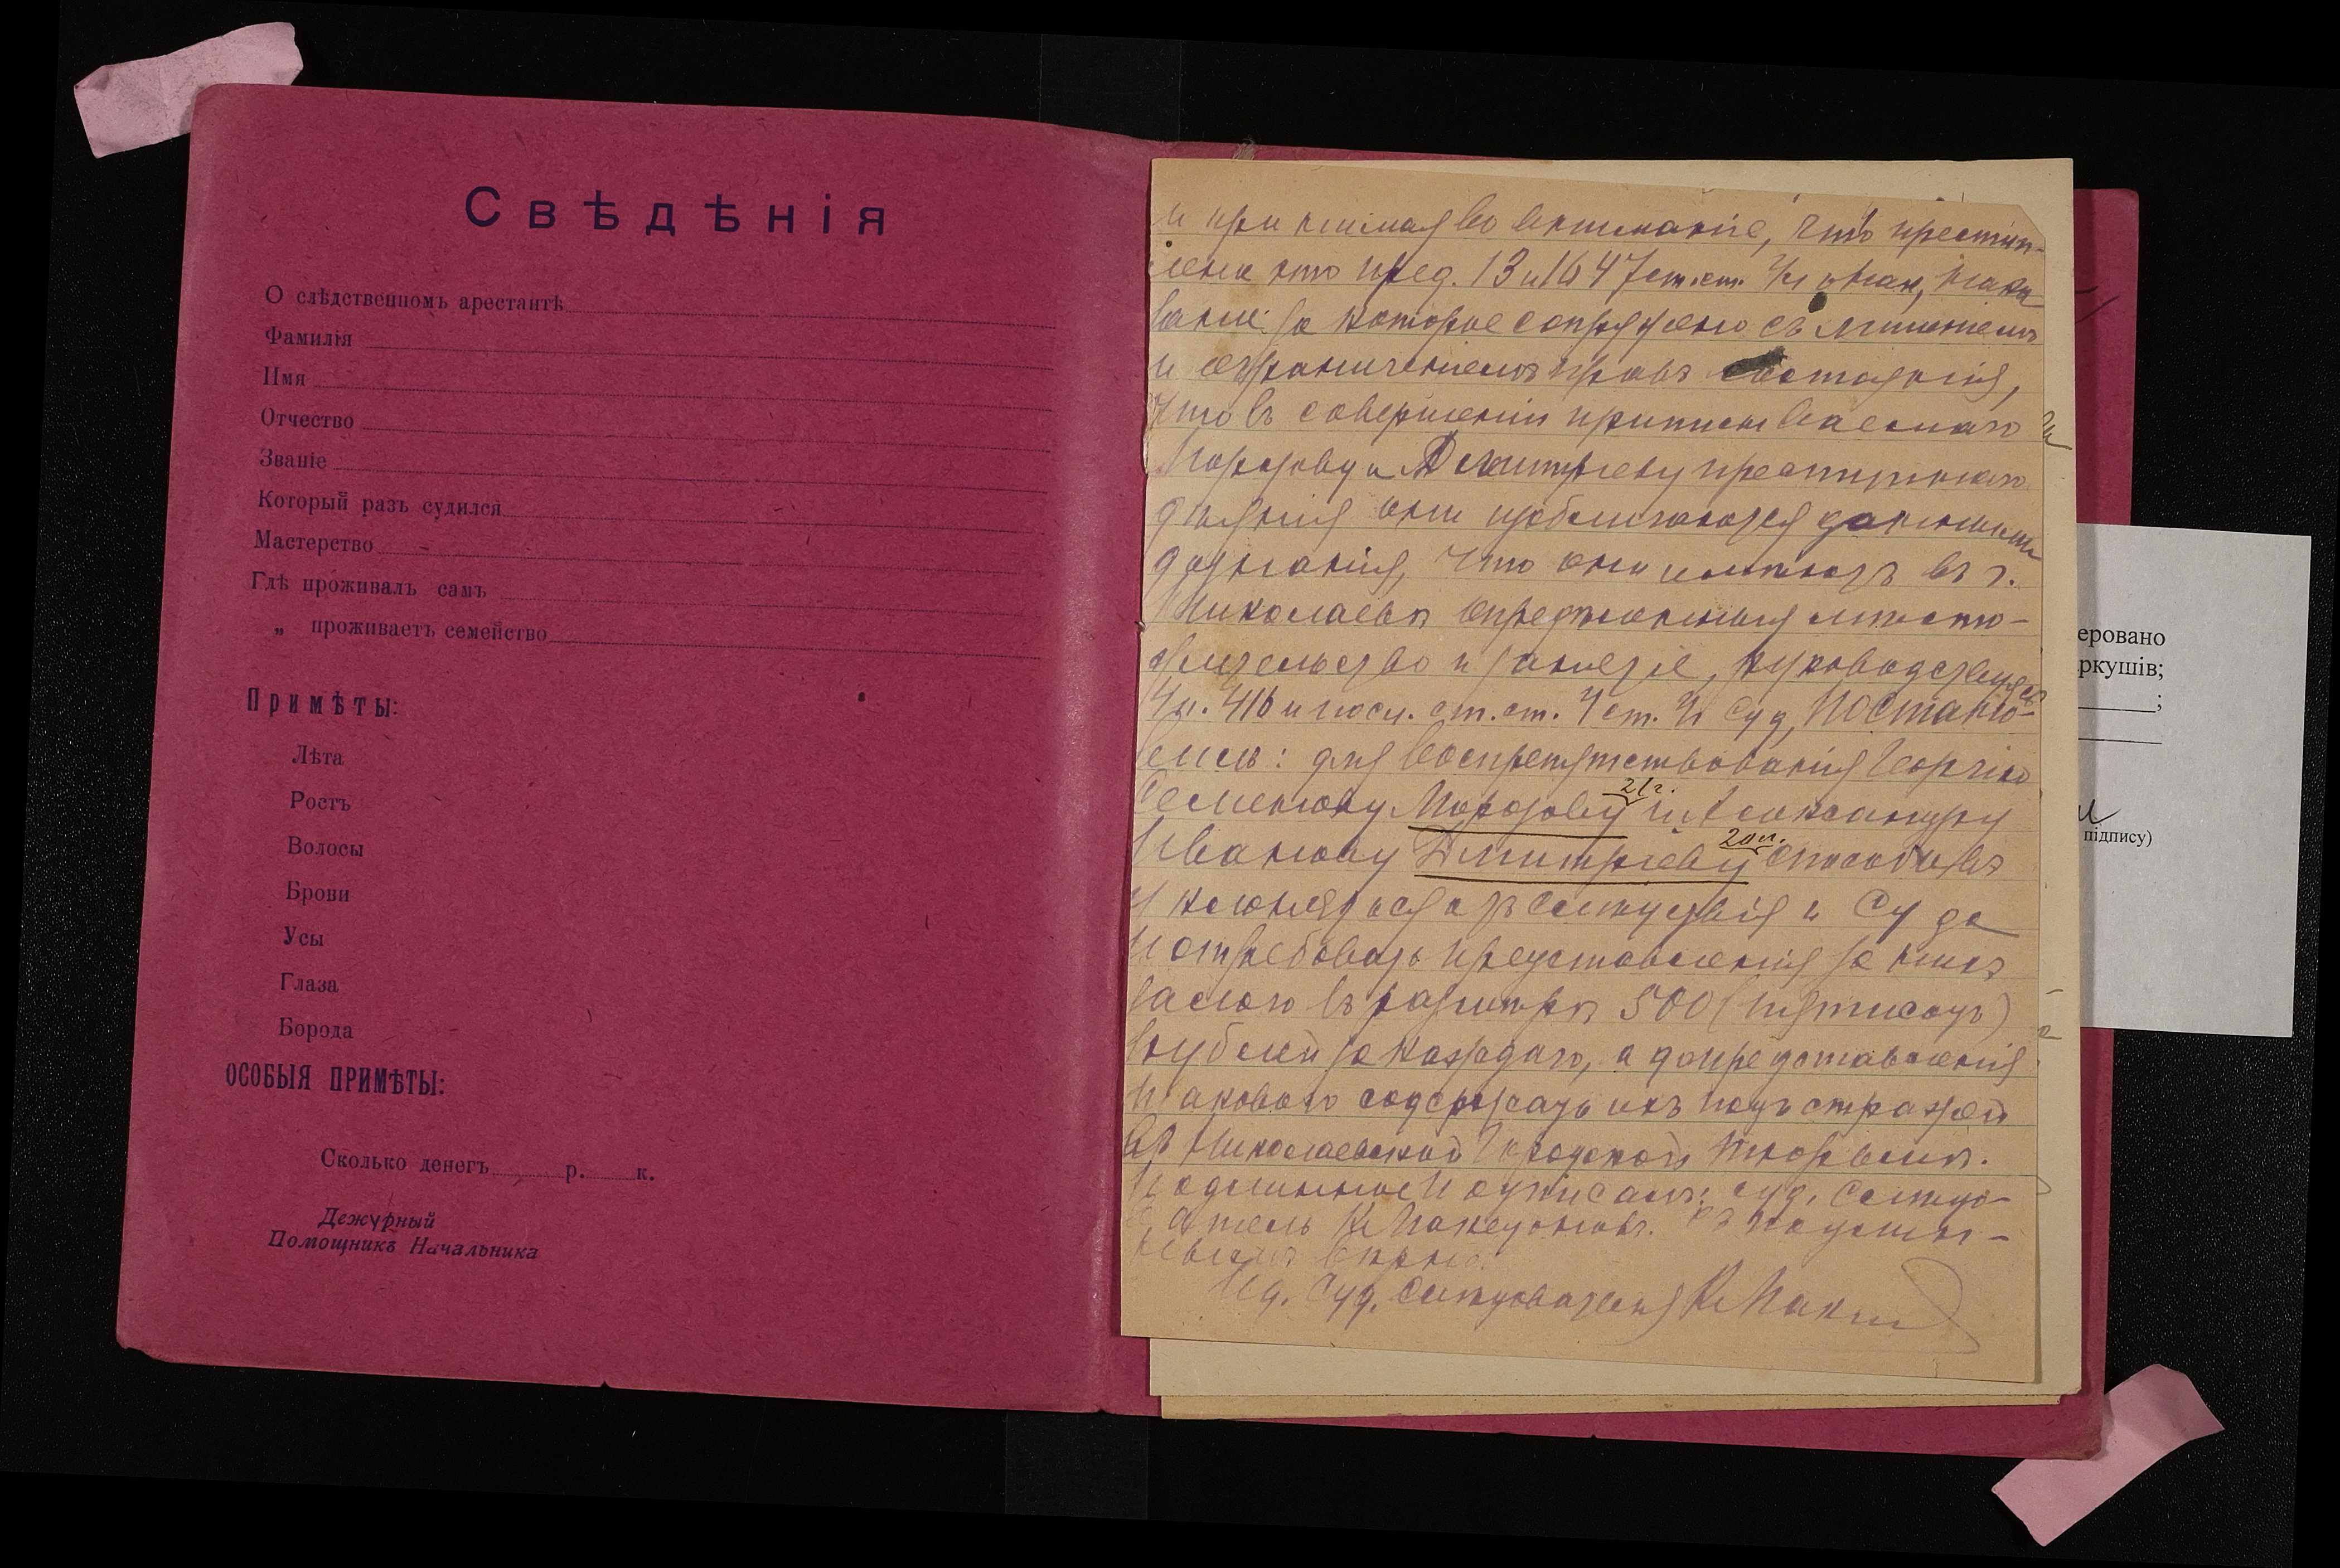 Свѣдѣнія
О слѣдственномъ арестантѣ
Фамилія
Имя
Отчество
Званіе
Который разъ судился
Мастерство
Гдѣ проживалъ самъ
„ проживаетъ семейство
Примѣты:
Лѣта
Ростъ
Волосы
Брови
Усы
Глаза
Борода
ОСОБЫЯ ПРИМѢТЫ:
Сколько денегъ р. к.
Дежурный
Помощникъ Начальника
и принимая во вниманіе, что преступ-
леніе это пред. 13 и 1647 ст.ст. Ул. о нак, наказа-
ваніе за которое сопряжено съ лишеніемъ
и ограниченіемъ правъ состоянія,
что въ совершеніи приписываемаго
Морозову и Дмитріеву преступнаго
дѣянія они изобличаются данными
дознанія, что они имѣютъ въ г.
Николаевѣ опредѣленныя мѣсто-
жительство и занятіе, руководствуясь
416 и посл. ст.ст. Уст. Уг Суд, Постано-
вилъ: для воспрепятствованія Георгію
Семенову Морозову 21 г. и Александру
Иванову Дмитріеву 20 л. способовъ
уклоняться отъ слѣдствія и Суда
потребовать представленія за нихъ
залога въ размѣрѣ 500 (пятисотъ)
рублей за каждаго, а до представленія
таковаго содержать ихъ подъ стражей
въ Николаевской Городской тюрьмѣ.
Подлинное подписалъ: Суд. Слѣдо-
ватель К Македоновъ. Съ подлин-
нымъ вѣрно:
Суд. Слѣдователь К Мак
еровано
ркушів;
;
підпису)